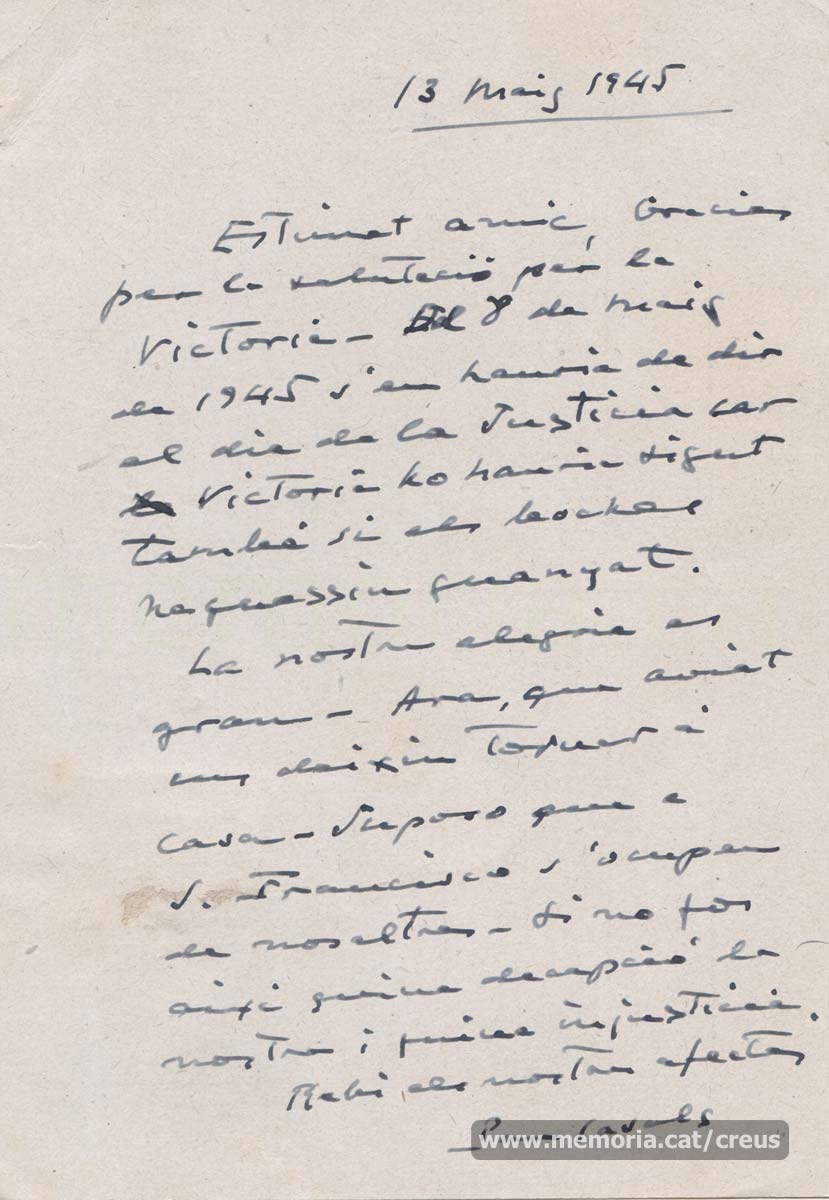 13 Maig 1945
Estimat amic, Gracies
per la salutació per la
Victoria - El 8 de Maig
de 1945 s'en hauria de dir
el dia de la Justicia car
Victoria ho hauria sigut
també si els boches
haguessin guanyat.
La nostra alegria es
gran - Ara, que aviat
ens deixin tornar à
casa - Suposo que a
S. Francisco s'ocupen
de nosaltres - Si no fos
aixi quina decepció la
nostra i quina injusticia.
Rebi els nostres afectes
Pau Casals
www.memoria.cat/creus